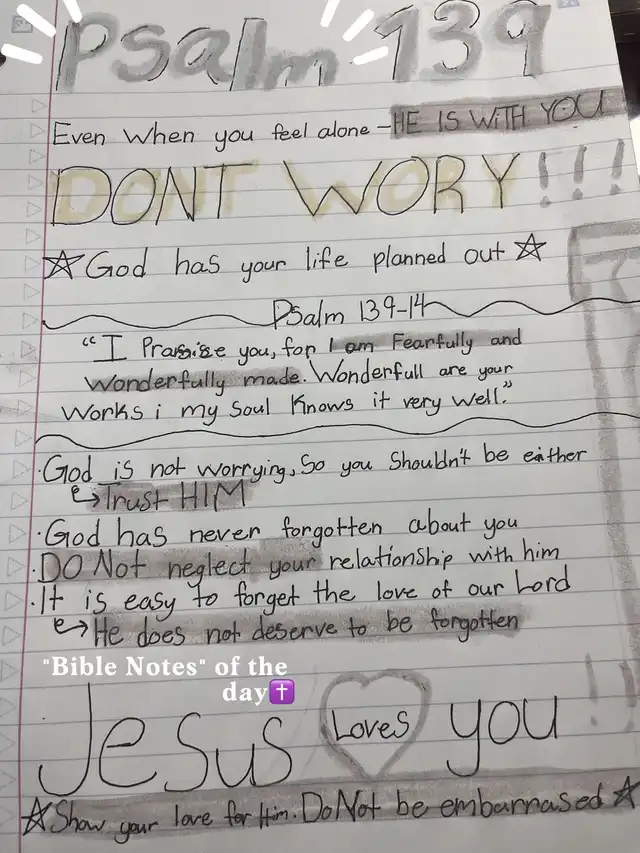 Psalm 139
Even when you feel alone - HE IS WITH YOU
DONT WORY!!!
☆ God has your life planned out ☆
Psalm 139-14
"I Praise you, for I am Fearfully and
wonderfully made. Wonderfull are your
works i my soul knows it very well."
· God is not worrying, so you shouldn't be either
↪ Trust HIM
· God has never forgotten about you
· DO Not neglect your relationship with him
· It is easy to forget the love of our Lord
↪ He does not deserve to be forgotten
"Bible Notes" of the
day✝️
Jesus Loves you!!
☆ Show your love for Him. Do Not be embarnased ☆